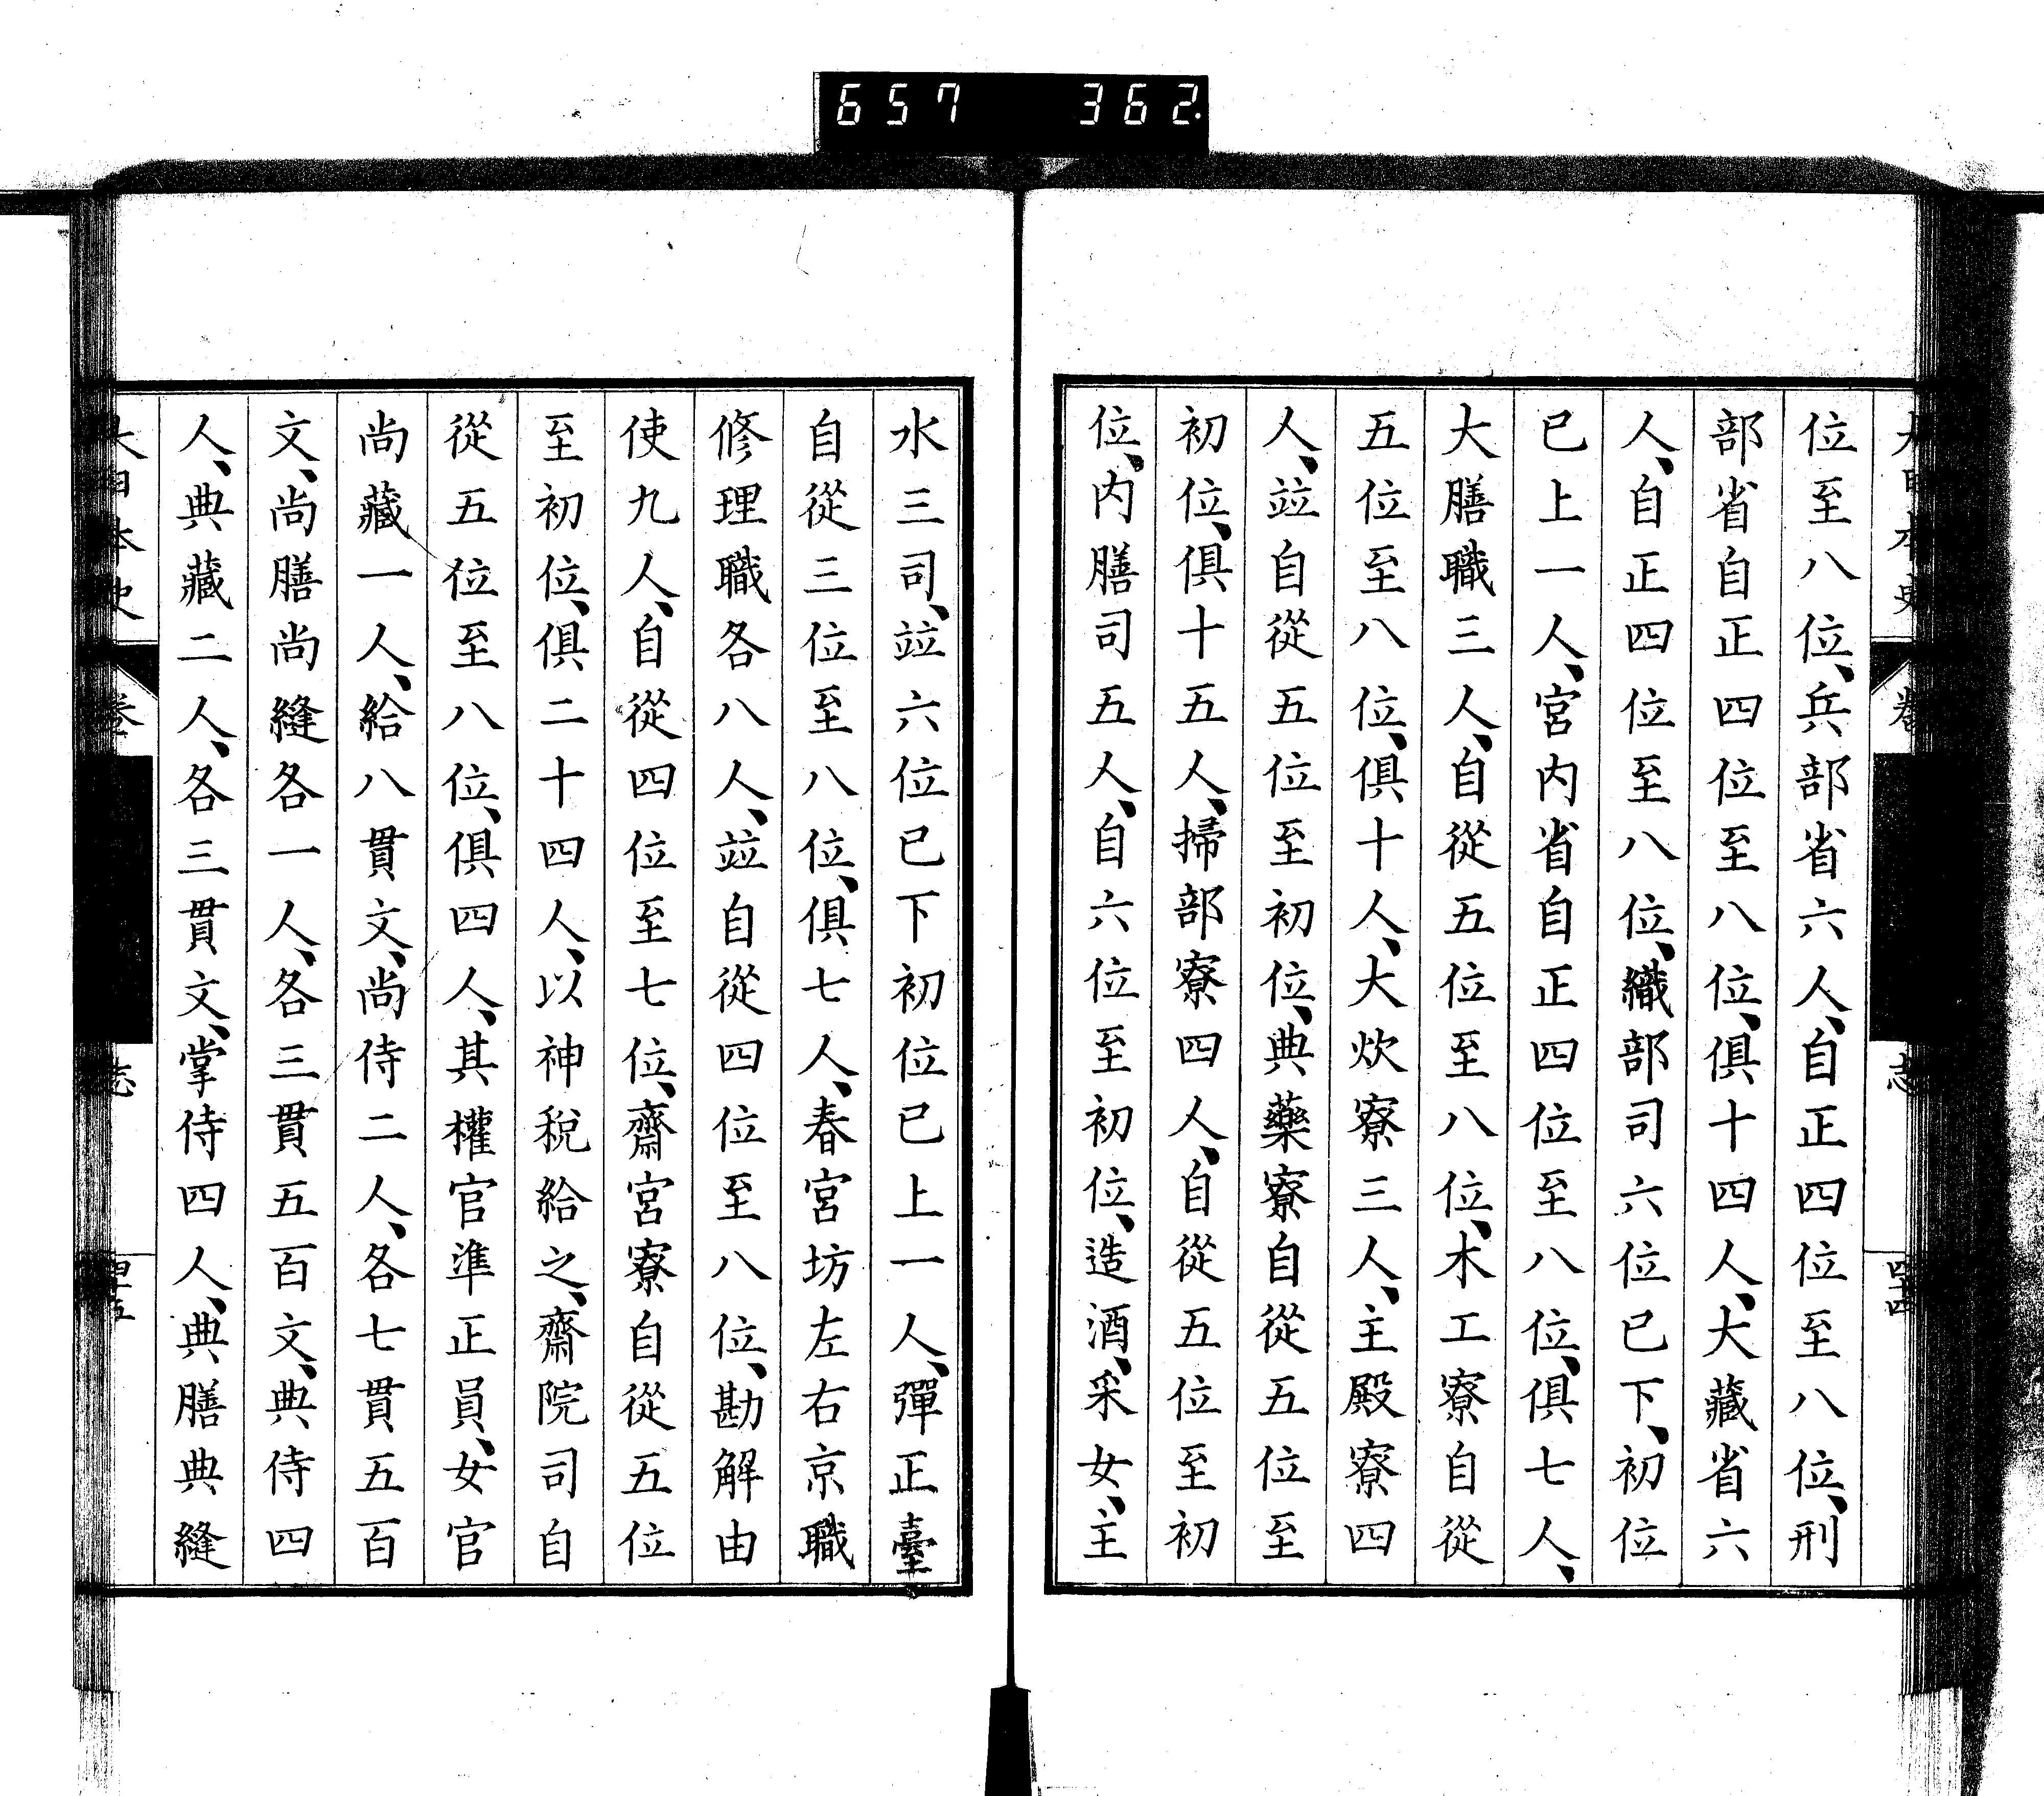 657 362
大日本史 卷 志 四十四
位至八位、兵部省六人、自正四位至八位、刑
部省自正四位至八位、俱十四人、大藏省六
人、自正四位至八位、織部司六位已下、初位
已上一人、宮内省自正四位至八位、俱七人、
大膳職三人、自從五位至八位、木工寮自從
五位至八位、俱十人、大炊寮三人、主殿寮四
人、竝自從五位至初位、典藥寮自從五位至
初位、俱十五人、掃部寮四人、自從五位至初
位、内膳司五人、自六位至初位、造酒、采女、主
水三司、竝六位已下初位已上一人、彈正臺
自從三位至八位、俱七人、春宮坊左右京職
修理職各八人、竝自從四位至八位、勘解由
使九人、自從四位至七位、齋宮寮自從五位
至初位、俱二十四人、以神稅給之、齋院司自
從五位至八位、俱四人、其權官準正員、女官
尚藏一人、給八貫文、尚侍二人、各七貫五百
文、尚膳尚縫各一人、各三貫五百文、典侍四
人、典藏二人、各三貫文、掌侍四人、典膳典縫
大日本史 卷 志 四十五